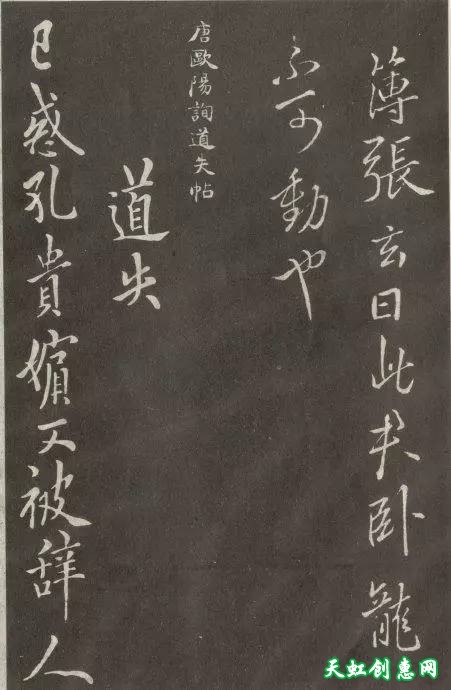 簿張玄曰此夫卧龍
不可動也
唐歐陽詢道失帖
道失
已惑孔貴嬪又被辭人
天虹创惠网